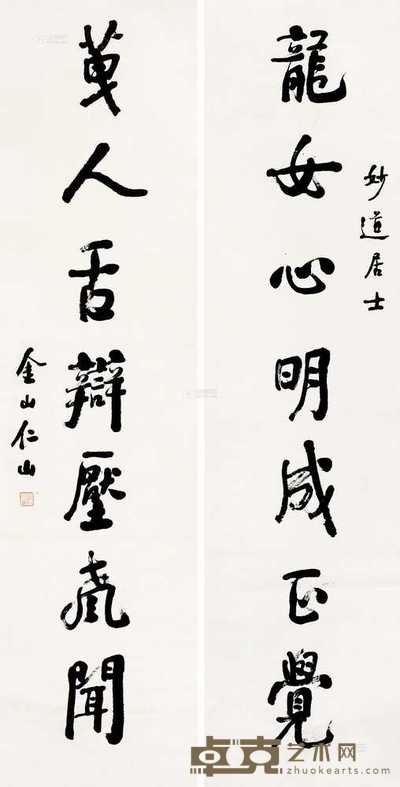 龍女心明成正覺
妙道居士
人舌辯壓聞
金山仁山
卓克艺术网
www.zhuokearts.com